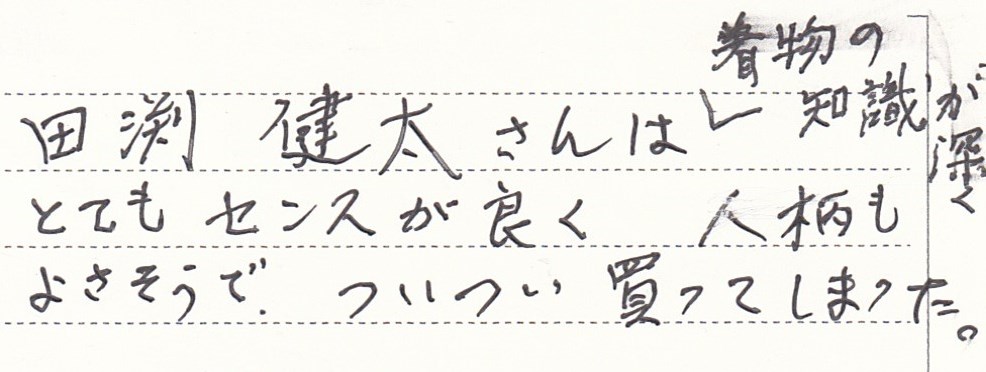 田渕 健太さんは
着物の
知識が
深く
とてもセンスが良く 人柄も
よさそうで、ついつい買ってしまった。